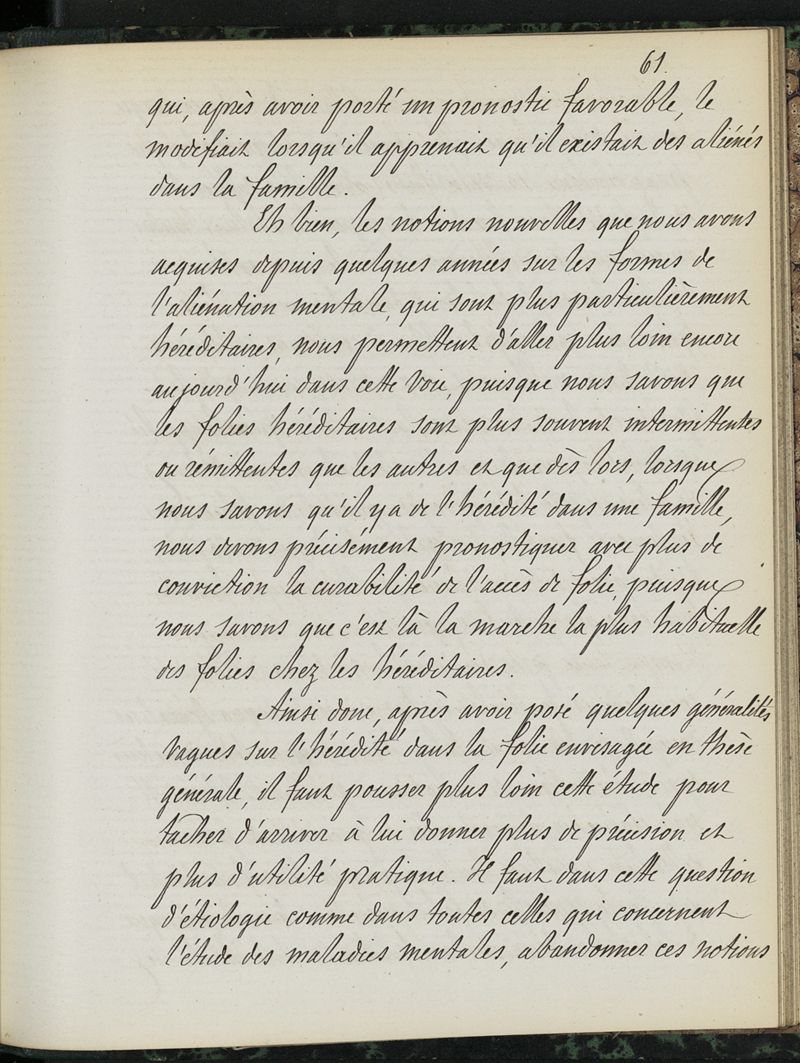 61.
qui, après avoir porté un pronostic favorable, le
modifiait lorsqu'il apprenait qu'il existait des aliénés
dans la famille.
Eh bien, les notions nouvelles que nous avons
acquises depuis quelques années sur les formes de
l'aliénation mentale, qui sont plus particulièrement
héréditaires, nous permettent d'aller plus loin encore
aujourd'hui dans cette voie, puisque nous savons que
les folies héréditaires sont plus souvent intermittentes
ou rémittentes que les autres et que dès lors, lorsque
nous savons qu'il y a de l'hérédité dans une famille,
nous devons précisément pronostiquer avec plus de
conviction la curabilité de l'accès de folie, puisque
nous savons que c'est là la marche la plus habituelle
des folies chez les héréditaires.
Ainsi donc, après avoir posé quelques généralités
vagues sur l'hérédité dans la folie envisagée en thèse
générale, il faut pousser plus loin cette étude pour
tacher d'arriver à lui donner plus de précision et
plus d'utilité pratique. Il faut dans cette question
d'étiologie comme dans toutes celles qui concernent
l'étude des maladies mentales, abandonner ces notions